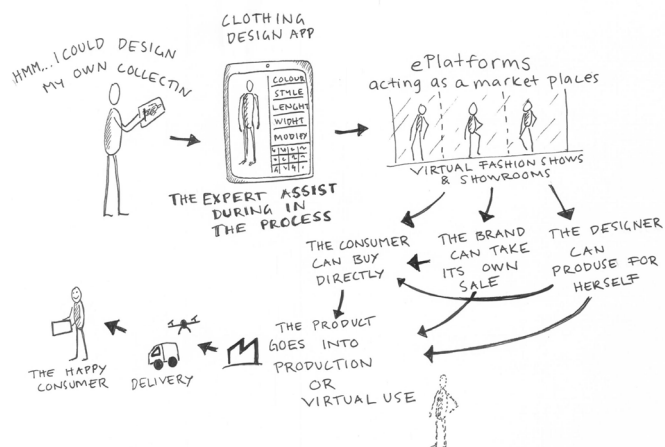 HMM...I COULD DESIGN
MY OWN COLLECTIN
CLOTHING
DESIGN APP
COLOUR
STYLE
LENGHT
WIDHT
MODIFY
THE EXPERT ASSIST
DURING IN
THE PROCESS
ePlatforms
acting as a market places
VIRTUAL FASHION SHOWS
& SHOWROOMS
THE CONSUMER
CAN BUY
DIRECTLY
THE BRAND
CAN TAKE
ITS OWN
SALE
THE DESIGNER
CAN
PRODUSE FOR
HERSELF
THE PRODUCT
GOES INTO
PRODUCTION
OR
VIRTUAL USE
DELIVERY
THE HAPPY
CONSUMER